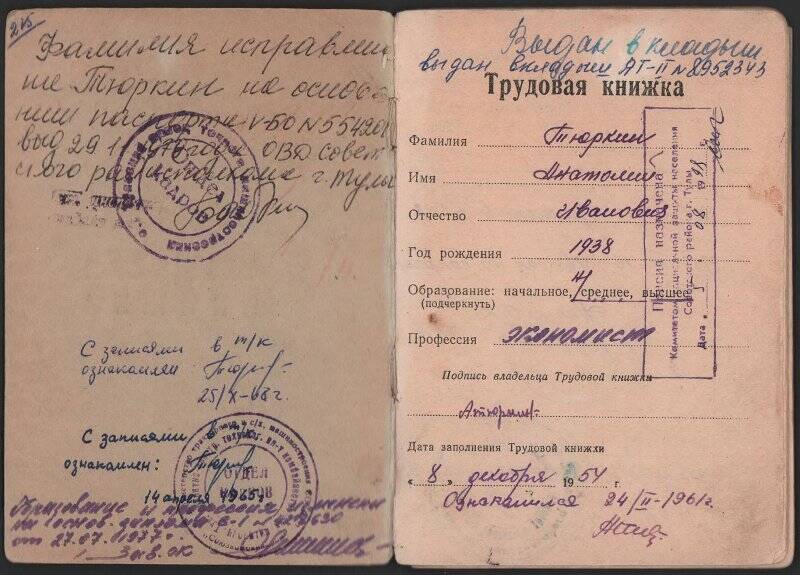 215
Фамилия исправлен
на Тюркин на основа
нии паспорта V-БО N 554201
выд 29 11 ОВД Совет
ского райисполкома г. Тулы
С записями в т/к
ознакомлен
25/X-68г.
С записями
ознакомлен:
14 апреля 1965г
ОТДЕЛ
КАДРОВ
Образование и профессия изменены
на основ. диплома
от 27.07.1977г.
Зав. ОК
Выдан вкладыш
выдан вкладыш АТ-II № 8952343
Трудовая книжка
Фамилия Тюркин
Имя Анатолий
Отчество Иванович
Год рождения 1938
Образование: начальное, среднее, высшее
(подчеркнуть)
Профессия экономист
Подпись владельца Трудовой книжки
Дата заполнения Трудовой книжки
„8" декабря 1954
Ознакомился 24/II-1961г.
Пенсия назначена
Комитетом социальной защиты населения
Советского района г. Тулы
Дата 08 1998